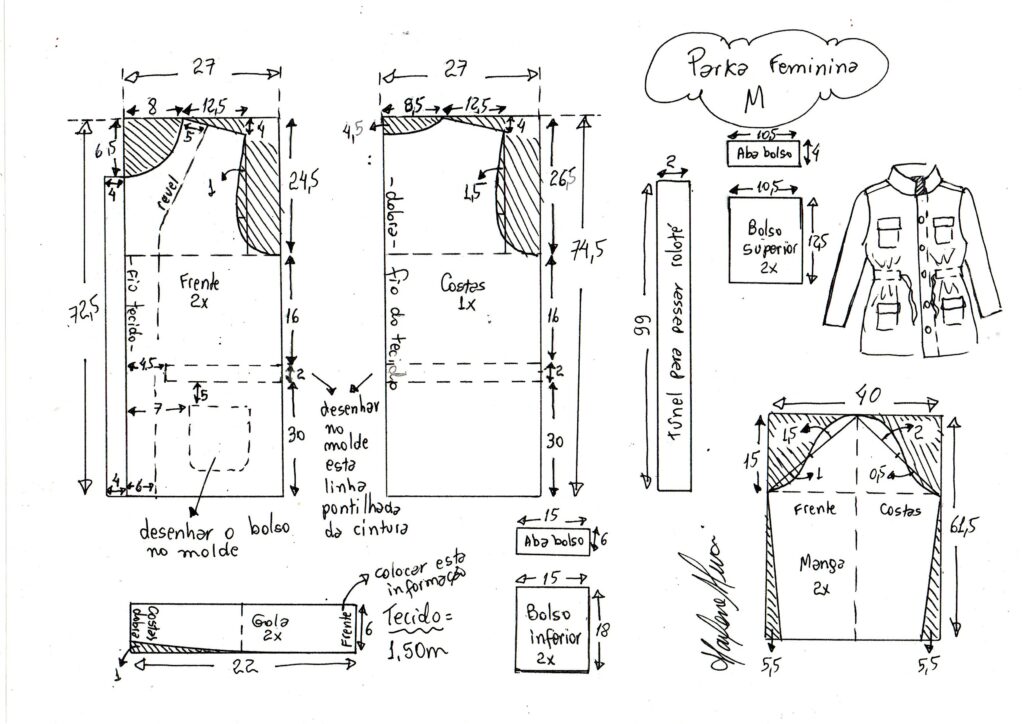 Parka Feminina
M
27
8
12,5
4
6,5
1,5
4
1
revel
24,5
- fio tecido -
Frente
2x
72,5
16
4,5
2
5
7
30
4
6
desenhar o bolso
no molde
desenhar
no
molde
esta
linha
pontilhada
da cintura
27
8,5
12,5
4,5
4
1,5
26,5
- dobra -
fio do tecido
Costas
1x
74,5
16
2
30
2
99
túnel para passar roloté
10,5
Aba bolso
4
10,5
Bolso
superior
2x
12,5
40
15
1,5
1
2
0,5
Frente
Costas
Manga
2x
61,5
5,5
5,5
15
Aba bolso
6
15
Bolso
inferior
2x
18
Costas
dobra
Gola
2x
Frente
6
1
22
colocar esta
informação
Tecido =
1,50m